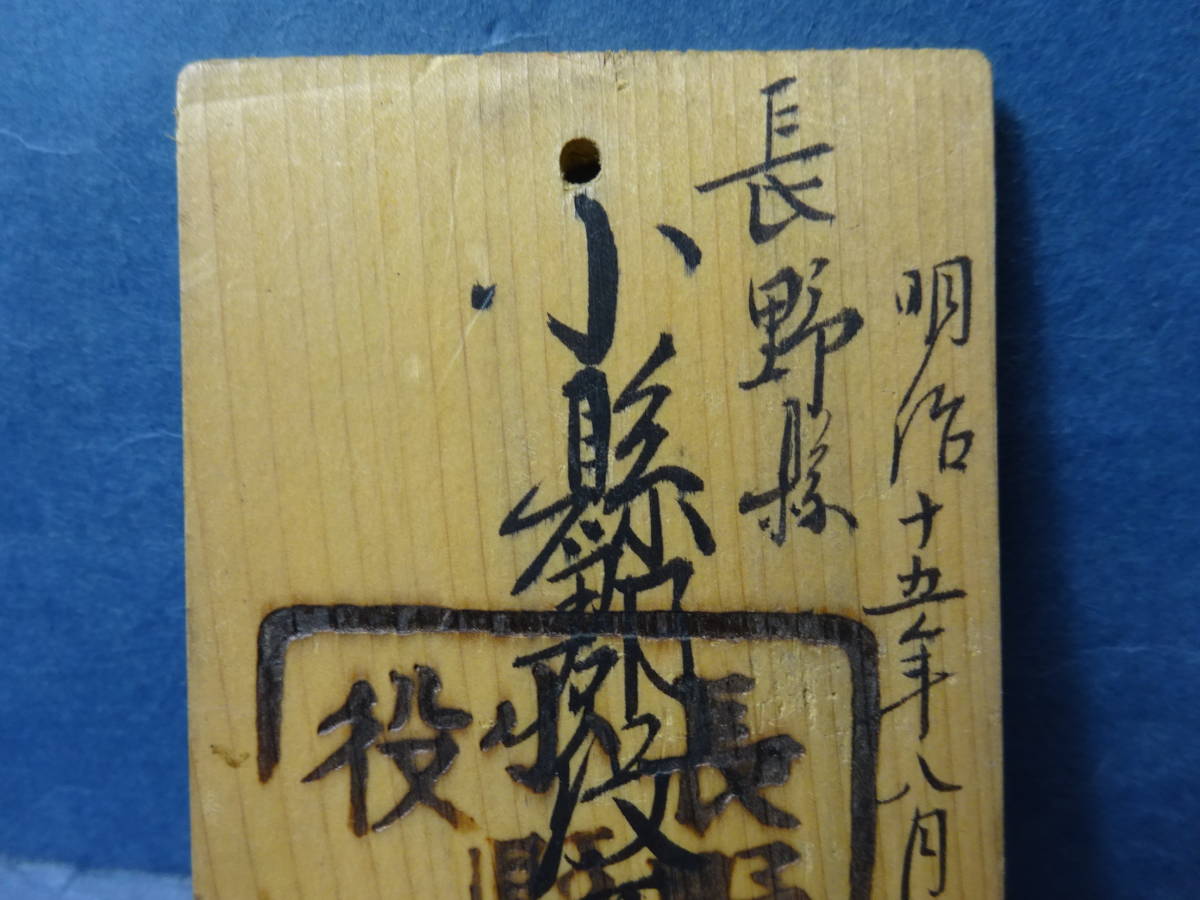 明治十五年八月
長野縣
小縣郡役
長
小縣
役